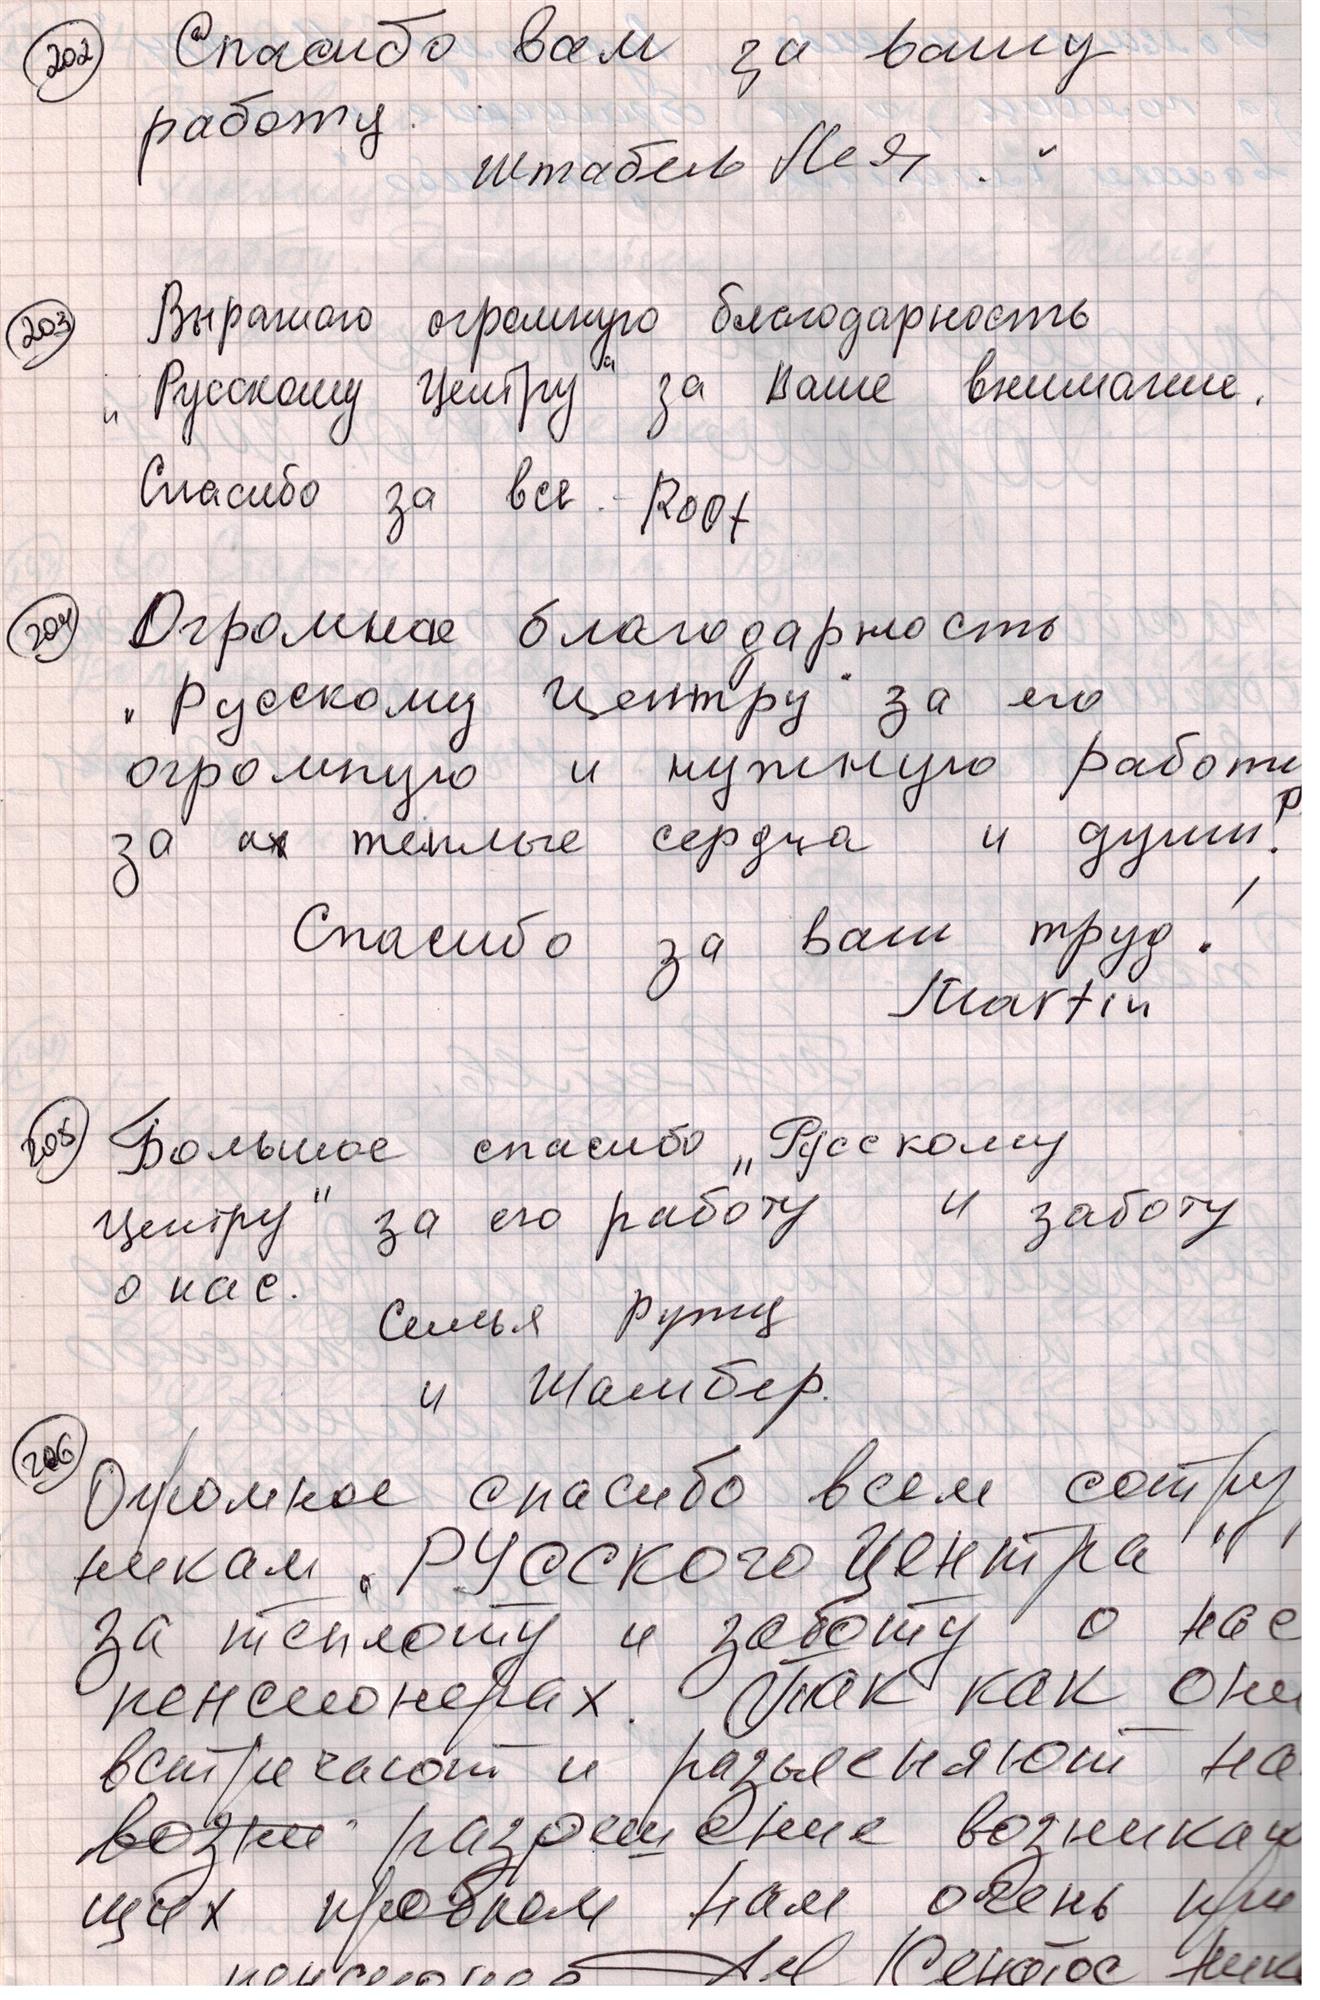 202 Спасибо вам за вашу
работу.
Штабель
203 Выражаю огромную благодарность
„Русскому Центру“ за Ваше внимание.
Спасибо за все. Root
204 Огромная благодарность
„Русскому Центру“ за его
огромную и нужную работ
за их тёплые сердца и души!
Спасибо за ваш труд!
Martin
205 Большое спасибо „Русскому
центру" за его работу и заботу
о нас.
Семья
и Шамбер.
206 Огромное спасибо всем сотру
никам „Русского Центра"
за теплоту и заботу о нас
пенсионерах. Так как они
встречают и разъясняют на
возни разрешение возникаю
щих проблем нам очень при